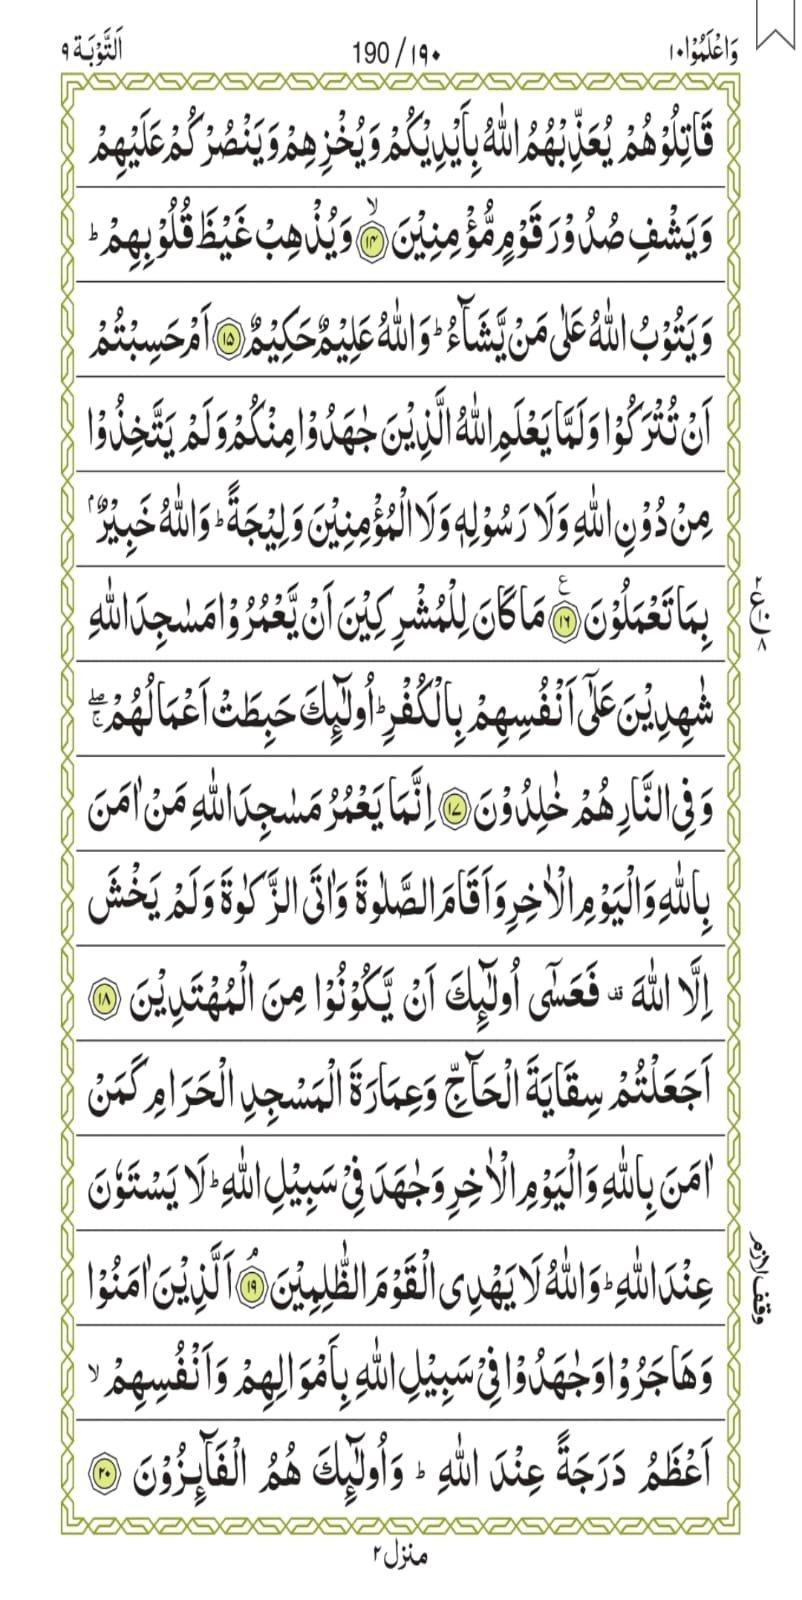 وَاعْلَمُوْا ١٠ 190 / ١٩٠ اَلتَّوْبَة ٩
قَاتِلُوْهُمْ يُعَذِّبْهُمُ اللّٰهُ بِاَيْدِيْكُمْ وَيُخْزِهِمْ وَيَنْصُرْكُمْ عَلَيْهِمْ
وَيَشْفِ صُدُوْرَ قَوْمٍ مُّؤْمِنِيْنَ ۙ﴿١٤﴾ وَيُذْهِبْ غَيْظَ قُلُوْبِهِمْ ؕ
وَيَتُوْبُ اللّٰهُ عَلٰى مَنْ يَّشَآءُ ؕ وَاللّٰهُ عَلِيْمٌ حَكِيْمٌ ﴿١٥﴾ اَمْ حَسِبْتُمْ
اَنْ تُتْرَكُوْا وَلَمَّا يَعْلَمِ اللّٰهُ الَّذِيْنَ جٰهَدُوْا مِنْكُمْ وَلَمْ يَتَّخِذُوْا
مِنْ دُوْنِ اللّٰهِ وَلَا رَسُوْلِهٖ وَلَا الْمُؤْمِنِيْنَ وَلِيْجَةً ؕ وَاللّٰهُ خَبِيْرٌۢ
بِمَا تَعْمَلُوْنَ ﴿١٦﴾ ع مَا كَانَ لِلْمُشْرِكِيْنَ اَنْ يَّعْمُرُوْا مَسٰجِدَ اللّٰهِ
٢ ع ١٠ ٨
شٰهِدِيْنَ عَلٰٓى اَنْفُسِهِمْ بِالْكُفْرِ ؕ اُولٰٓئِكَ حَبِطَتْ اَعْمَالُهُمْ ۖۚ
وَفِى النَّارِ هُمْ خٰلِدُوْنَ ﴿١٧﴾ اِنَّمَا يَعْمُرُ مَسٰجِدَ اللّٰهِ مَنْ اٰمَنَ
بِاللّٰهِ وَالْيَوْمِ الْاٰخِرِ وَاَقَامَ الصَّلٰوةَ وَاٰتَى الزَّكٰوةَ وَلَمْ يَخْشَ
اِلَّا اللّٰهَ قف فَعَسٰٓى اُولٰٓئِكَ اَنْ يَّكُوْنُوْا مِنَ الْمُهْتَدِيْنَ ﴿١٨﴾
اَجَعَلْتُمْ سِقَايَةَ الْحَآجِّ وَعِمَارَةَ الْمَسْجِدِ الْحَرَامِ كَمَنْ
اٰمَنَ بِاللّٰهِ وَالْيَوْمِ الْاٰخِرِ وَجٰهَدَ فِىْ سَبِيْلِ اللّٰهِ ؕ لَا يَسْتَوٗنَ
عِنْدَ اللّٰهِ ؕ وَاللّٰهُ لَا يَهْدِى الْقَوْمَ الظّٰلِمِيْنَ ۘ﴿١٩﴾ اَلَّذِيْنَ اٰمَنُوْا
وقف لازم
وَهَاجَرُوْا وَجٰهَدُوْا فِىْ سَبِيْلِ اللّٰهِ بِاَمْوَالِهِمْ وَاَنْفُسِهِمْ ۙ
اَعْظَمُ دَرَجَةً عِنْدَ اللّٰهِ ؕ وَاُولٰٓئِكَ هُمُ الْفَآئِزُوْنَ ﴿٢٠﴾
منزل ٢